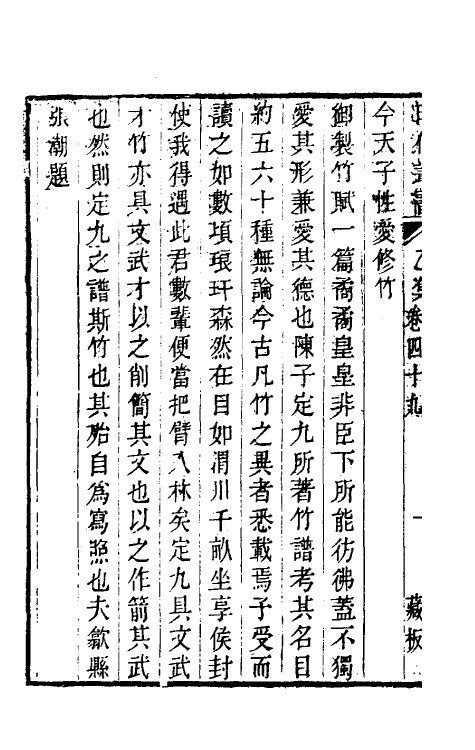 乙集卷四十九
一
藏板
今天子性愛修竹
御製竹賦一篇矞矞皇皇非臣下所能彷彿蓋不獨
愛其形兼愛其德也陳子定九所著竹譜考其名目
約五六十種無論今古凡竹之異者悉載焉予受而
讀之如數項琅玕森然在目如渭川千畝坐享侯封
使我得遇此君數輩便當把臂入林矣定九具文武
才竹亦具文武才以之削簡其文也以之作箭其武
也然則定九之譜斯竹也其殆自為寫照也夫歙縣
張潮題